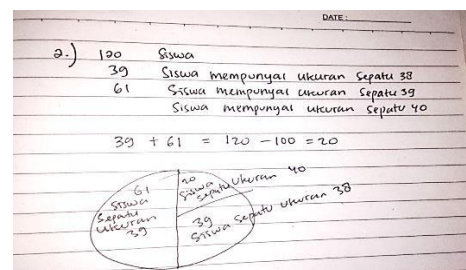 DATE :
2.) 120 Siswa
39 Siswa mempunyai ukuran Sepatu 38
61 Siswa mempunyai ukuran Sepatu 39
Siswa mempunyai ukuran Sepatu 40
39 + 61 = 120 - 100 = 20
61
Siswa
Sepatu
ukuran
39
20
Siswa
sepatu ukuran 40
39
Siswa sepatu ukuran 38